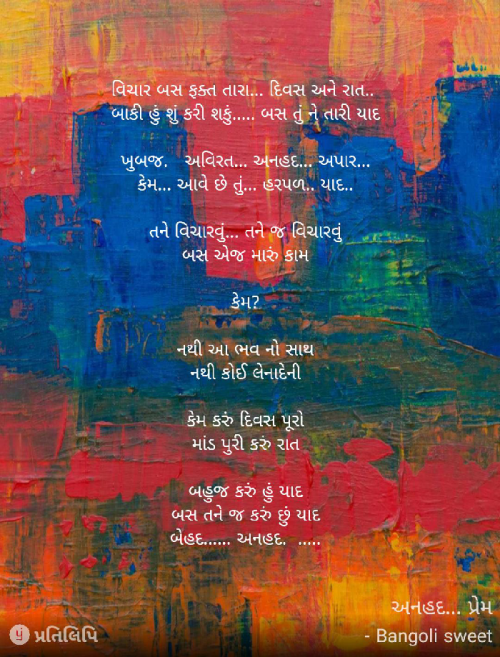 વિચાર બસ ફક્ત તારા... દિવસ અને રાત..
બાકી હું શું કરી શકું..... બસ તું ને તારી યાદ
ખુબજ.  અવિરત... અનહદ... અપાર...
કેમ... આવે છે તું... હરપળ.. યાદ..
તને વિચારવું... તને જ વિચારવું
બસ એજ મારું કામ
કેમ?
નથી આ ભવ નો સાથ
નથી કોઈ લેનાદેની
કેમ કરું દિવસ પૂરો
માંડ પુરી કરું રાત
બહુજ કરું હું યાદ
બસ તને જ કરું છું યાદ
બેહદ...... અનહદ.  .....
અનહદ... પ્રેમ
- Bangoli sweet
પ્રતિલિપિ